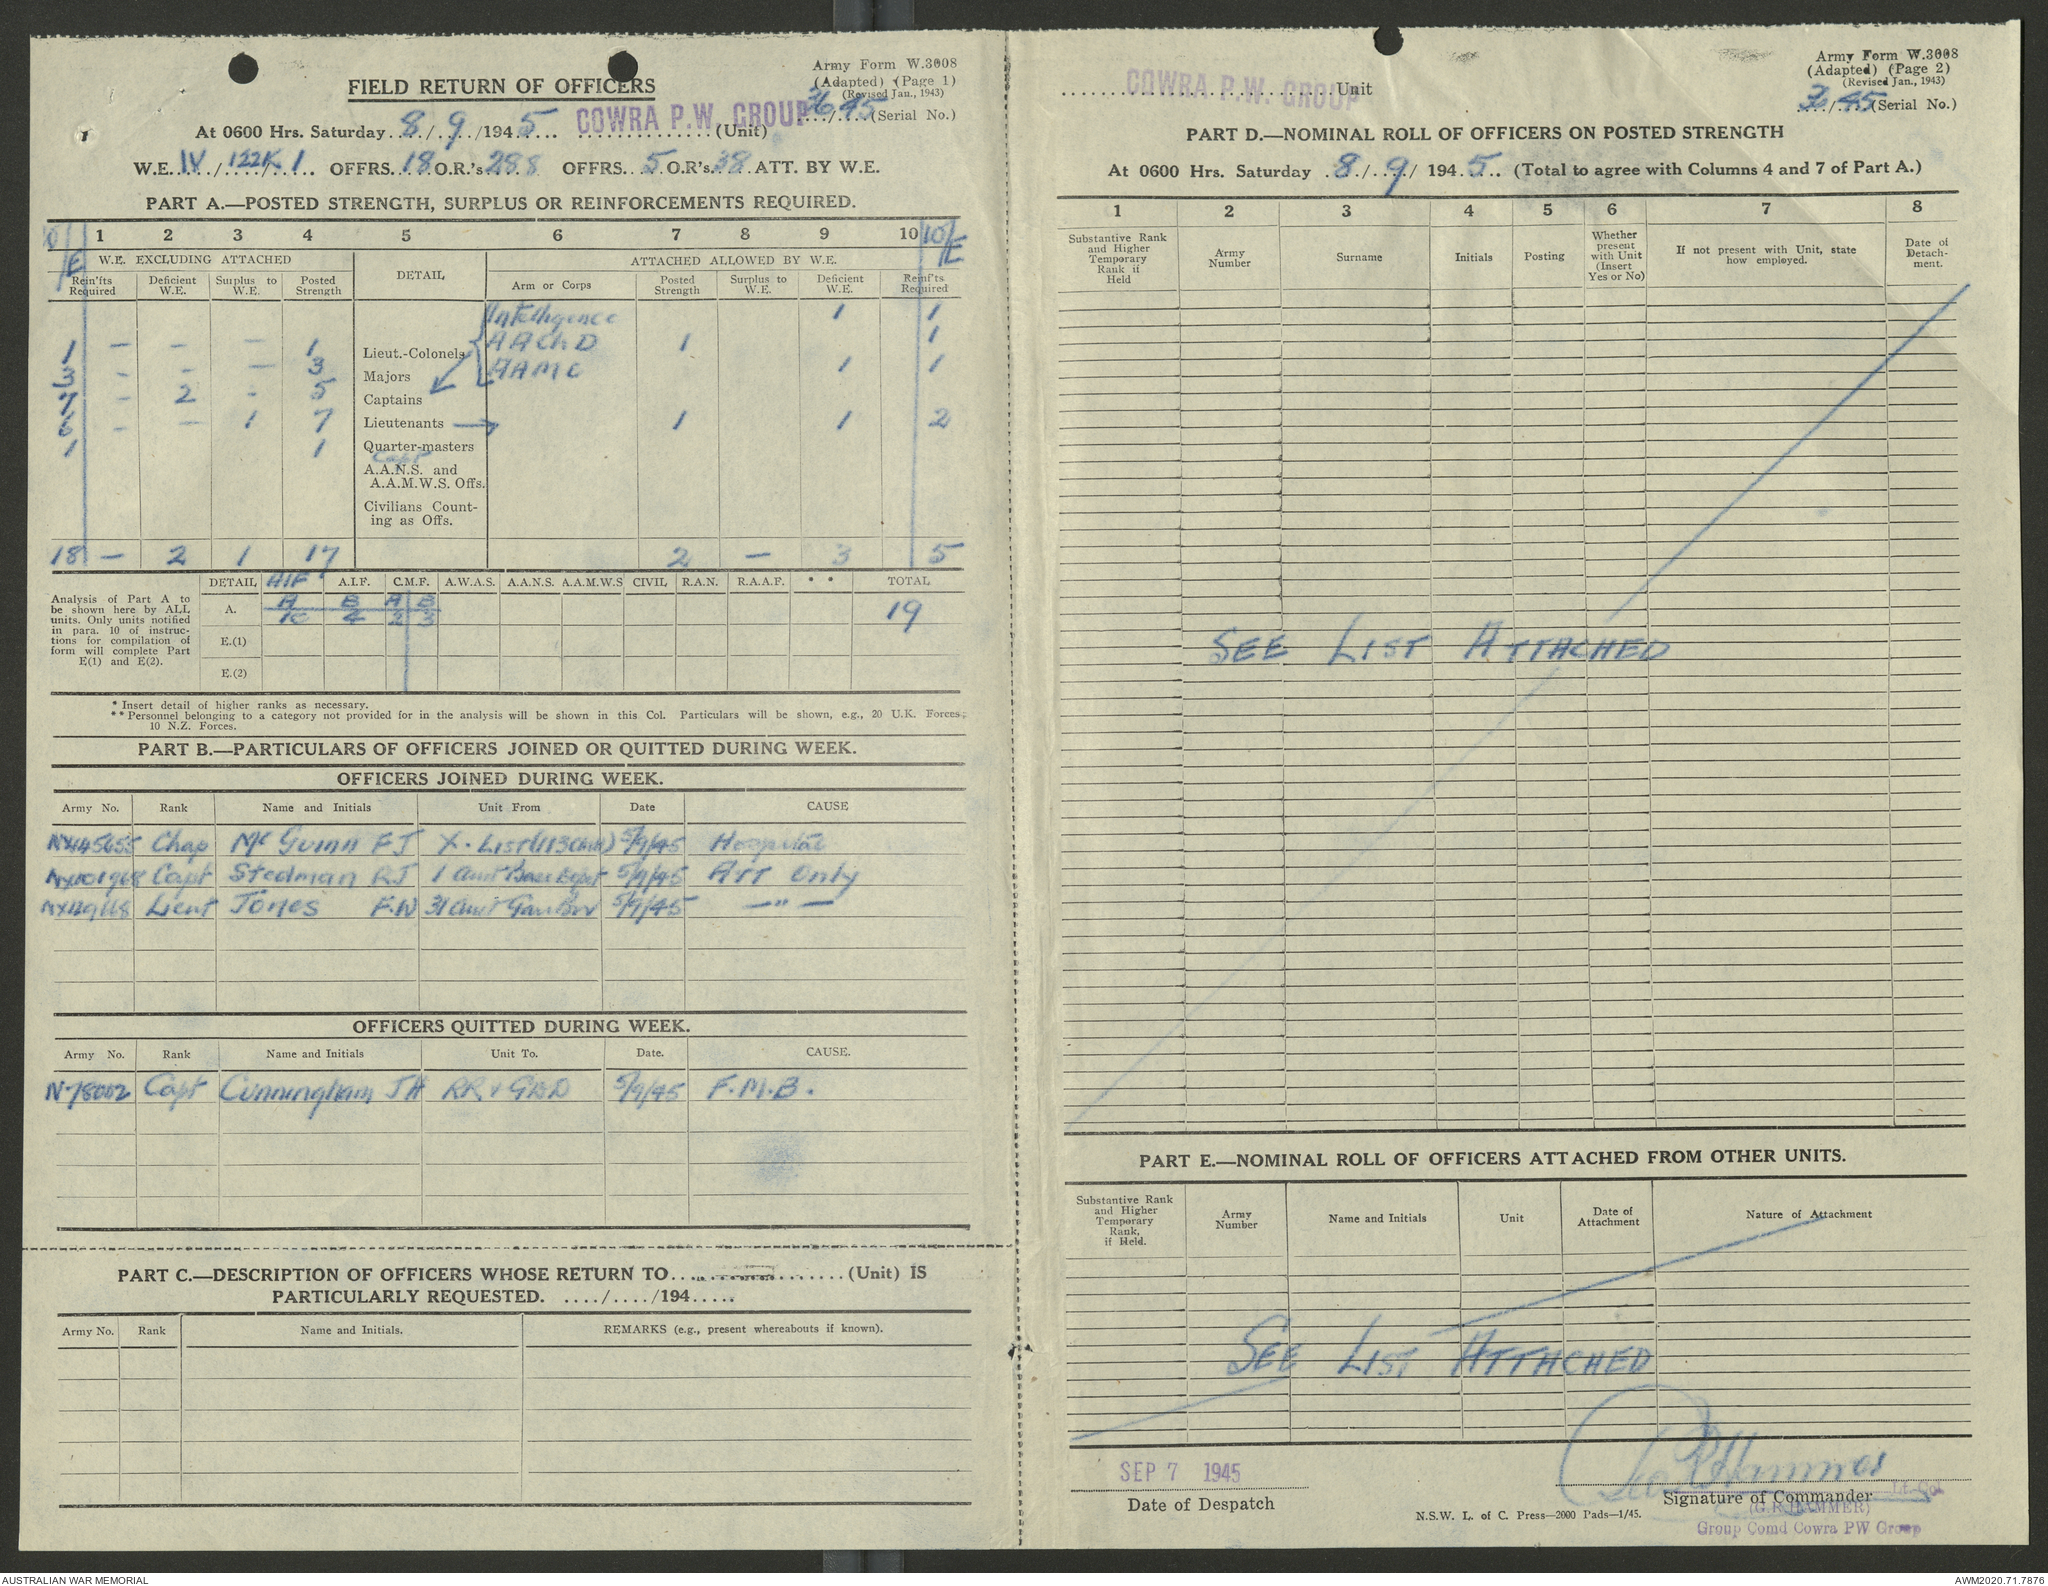 FIELD RETURN OF OFFICERS
Army Form W.3008
(Adapted) (Page 1)
(Revised Jan., 1943)
36/45 (Serial No.)
At 0600 Hrs. Saturday 8/9/1945 COWRA P.W. GROUP (Unit)
W.E. IV/122K/1 OFFRS. 18 O.R's 288 OFFRS. 5 O.R's 38 ATT. BY W.E.
PART A.—POSTED STRENGTH, SURPLUS OR REINFORCEMENTS REQUIRED.
1 2 3 4 5 6 7 8 9 10
W.E. EXCLUDING ATTACHED DETAIL ATTACHED ALLOWED BY W.E.
Rein'its Required Deficient W.E. Surplus to W.E. Posted Strength Arm or Corps Posted Strength Surplus to W.E. Deficient W.E. Reinf'ts Required
Intelligence 1 1
1 — — — 1 Lieut.-Colonels AAChD 1 1
3 - - — 3 Majors AAMC 1 1
7 - 2 - 5 Captains
6 - — 1 7 Lieutenants 1 1 2
1 1 Quarter-masters
Capt
A.A.N.S. and
A.A.M.W.S. Offs.
Civilians Count-
ing as Offs.
18 — 2 1 17 2 — 3 5
DETAIL AIF A.I.F. C.M.F. A.W.A.S. A.A.N.S. A.A.M.W.S CIVIL R.A.N. R.A.A.F. * * TOTAL
Analysis of Part A to
be shown here by ALL
units. Only units notified
in para. 10 of instruc-
tions for compilation of
form will complete Part
E(1) and E(2).
A. A B A B
2 3 19
E.(1)
E.(2)
* Insert detail of higher ranks as necessary.
** Personnel belonging to a category not provided for in the analysis will be shown in this Col. Particulars will be shown, e.g., 20 U.K. Forces;
10 N.Z. Forces.
PART B.—PARTICULARS OF OFFICERS JOINED OR QUITTED DURING WEEK.
OFFICERS JOINED DURING WEEK.
Army No. Rank Name and Initials Unit From Date CAUSE
Chap McGuinn FJ X. List 5/9/45 Hospital
Capt Stedman RJ 1 Aust Base 5/9/45 Att Only
Lieut Jones F.W 31 Aust Garr Bn 5/9/45 —"—
OFFICERS QUITTED DURING WEEK.
Army No. Rank Name and Initials Unit To. Date. CAUSE.
N78002 Capt Cunningham JH RR & GDD 5/9/45 F.M.B.
PART C.—DESCRIPTION OF OFFICERS WHOSE RETURN TO (Unit) IS
PARTICULARLY REQUESTED. ..../..../194.....
Army No. Rank Name and Initials. REMARKS (e.g., present whereabouts if known).
COWRA P.W. GROUP Unit
Army Form W.3008
(Adapted) (Page 2)
(Revised Jan., 1943)
36/45 (Serial No.)
PART D.—NOMINAL ROLL OF OFFICERS ON POSTED STRENGTH
At 0600 Hrs. Saturday 8/9/1945 (Total to agree with Columns 4 and 7 of Part A.)
1 2 3 4 5 6 7 8
Substantive Rank and Higher Temporary Rank if Held Army Number Surname Initials Posting Whether present with Unit (Insert Yes or No) If not present with Unit, state how employed. Date of Detach-ment.
SEE LIST ATTACHED
PART E.—NOMINAL ROLL OF OFFICERS ATTACHED FROM OTHER UNITS.
Substantive Rank and Higher Temporary Rank, if Held. Army Number Name and Initials Unit Date of Attachment Nature of Attachment
SEE LIST ATTACHED
SEP 7 1945
Date of Despatch
Signature of Commander Lt. Col
(G.R. HAMMER)
Group Comd Cowra PW Group
N.S.W. L. of C. Press—2000 Pads—1/45.
AUSTRALIAN WAR MEMORIAL
AWM2020.71.7876